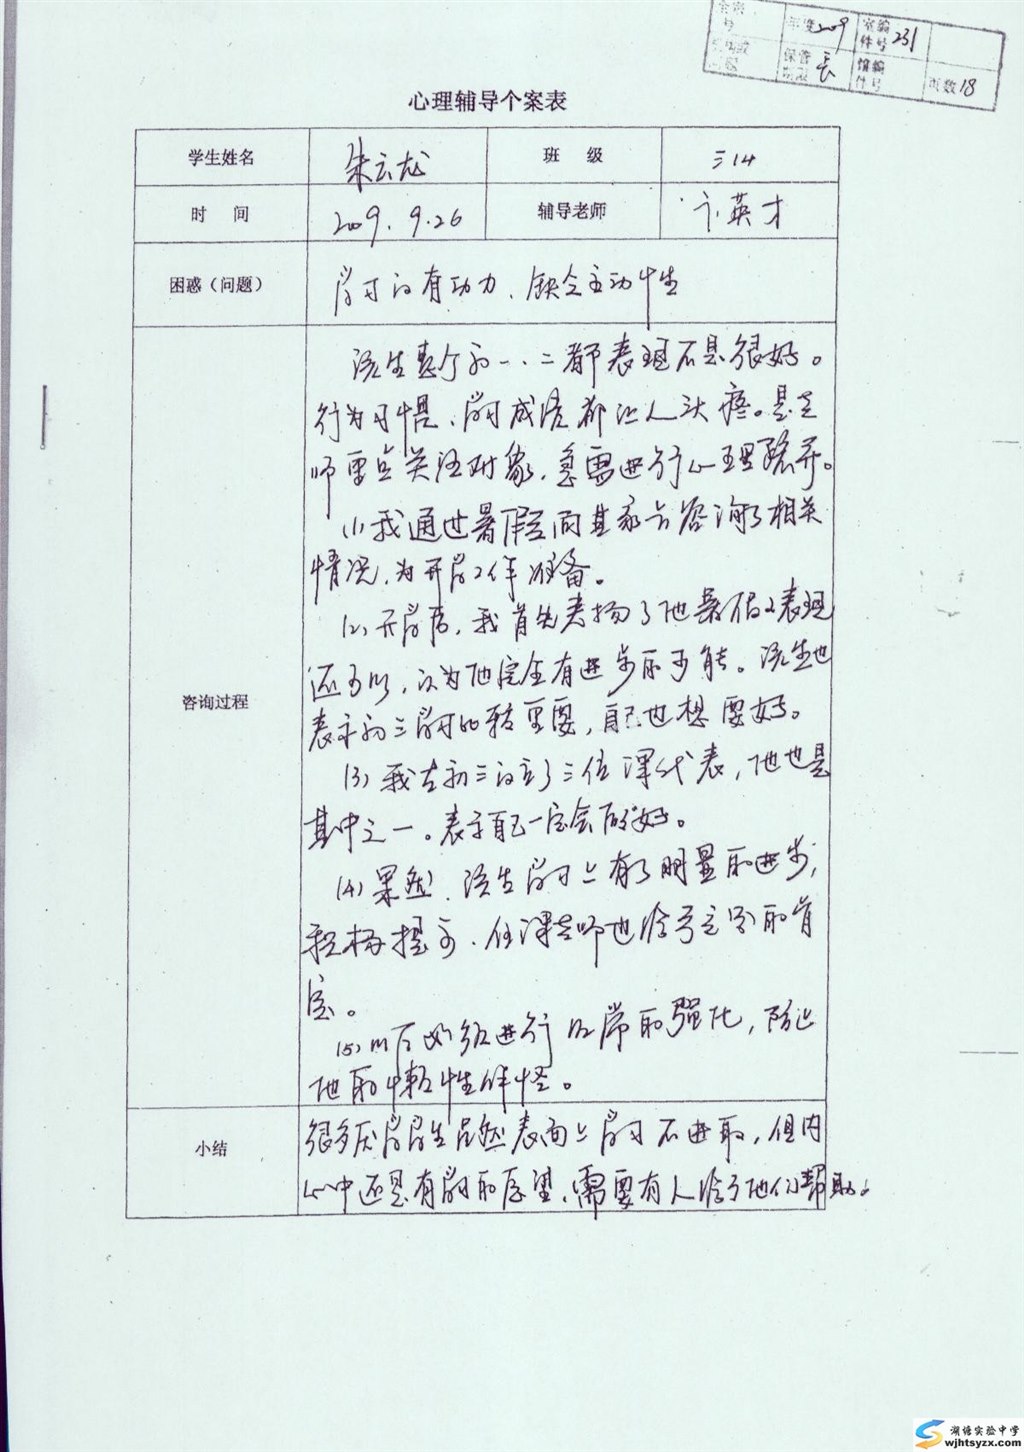 年度 2009 室编件号 231
保管期限 长 馆编件号 页数 18
心理辅导个案表
学生姓名 朱云龙 班 级 三14
时 间 2009.9.26 辅导老师 卞英才
困惑（问题） 学习没有动力、缺乏主动性
该生整个初一、二都表现不是很好。
行为习惯、学习成绩都让人头疼。是老
师重点关注对象，急需进行心理疏导。
(1)我通过暑假向其家长咨询了相关
情况，为开学工作准备。
(2)开学后，我首先表扬了他暑假表现
还可以，认为他完全有进步的可能。该生也
表示初三学习比较重要，自己也想要好。
咨询过程
(3)我在初三设立了三位课代表，他也是
其中之一。表示自己一定会做好。
(4)果然，该生学习上有了明显的进步，
积极提高、任课老师也给予充分的肯
定。
(5)以后必须进行经常的强化，防止
他的惰性作怪。
小结
很多厌学学生虽然表面上学习不进取，但内
心中还是有学习的愿望，需要有人给予他们帮助。
湖塘实验中学
wjhtsyzx.com